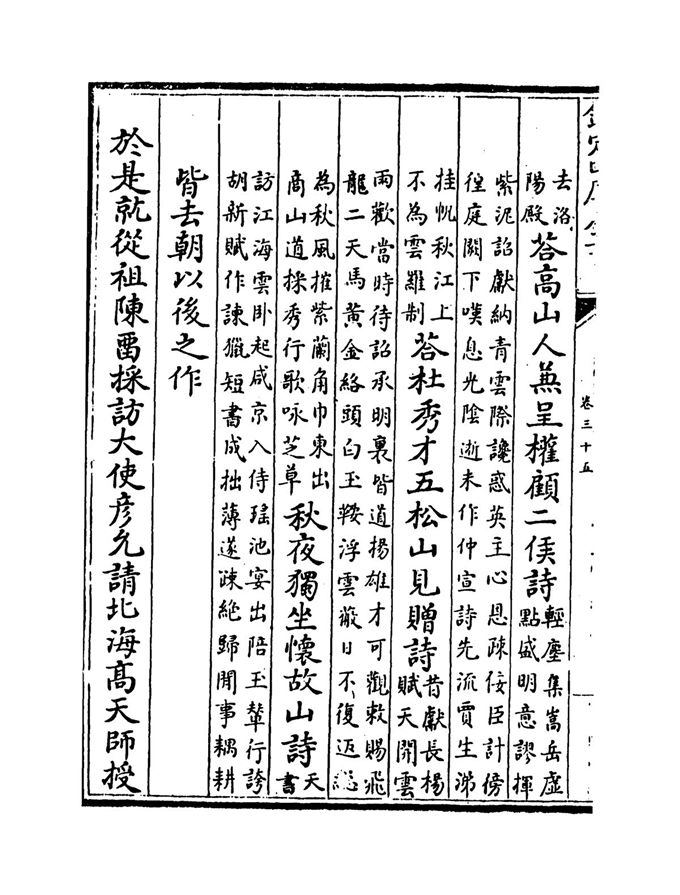 卷三十五
去洛
陽殿
荅高山人兼呈權顧二侯詩
輕塵集嵩岳虚
點盛明意謬揮
紫泥詔獻納青雲際讒惑英主心恩疎佞臣計傍
徨庭闕下嘆息光陰逝未作仲宣詩先流賈生涕
挂帆秋江上
不為雲羅制
荅杜秀才五松山見贈詩
昔獻長楊
賦天開雲
雨歡當時待詔承明裏皆道揚雄才可觀敕賜飛
龍二天馬黄金絡頭白玉鞍浮雲蔽日不復返總
為秋風摧紫蘭角巾東出
商山道採秀行歌咏芝草
秋夜獨坐懷故山詩
天
書
訪江海雲卧起咸京入侍瑶池宴出陪玉輦行誇
胡新賦作諫獵短書成拙薄遂疎絶歸閒事耦耕
皆去朝以後之作
於是就從祖陳留採訪大使彦允請北海髙天師授